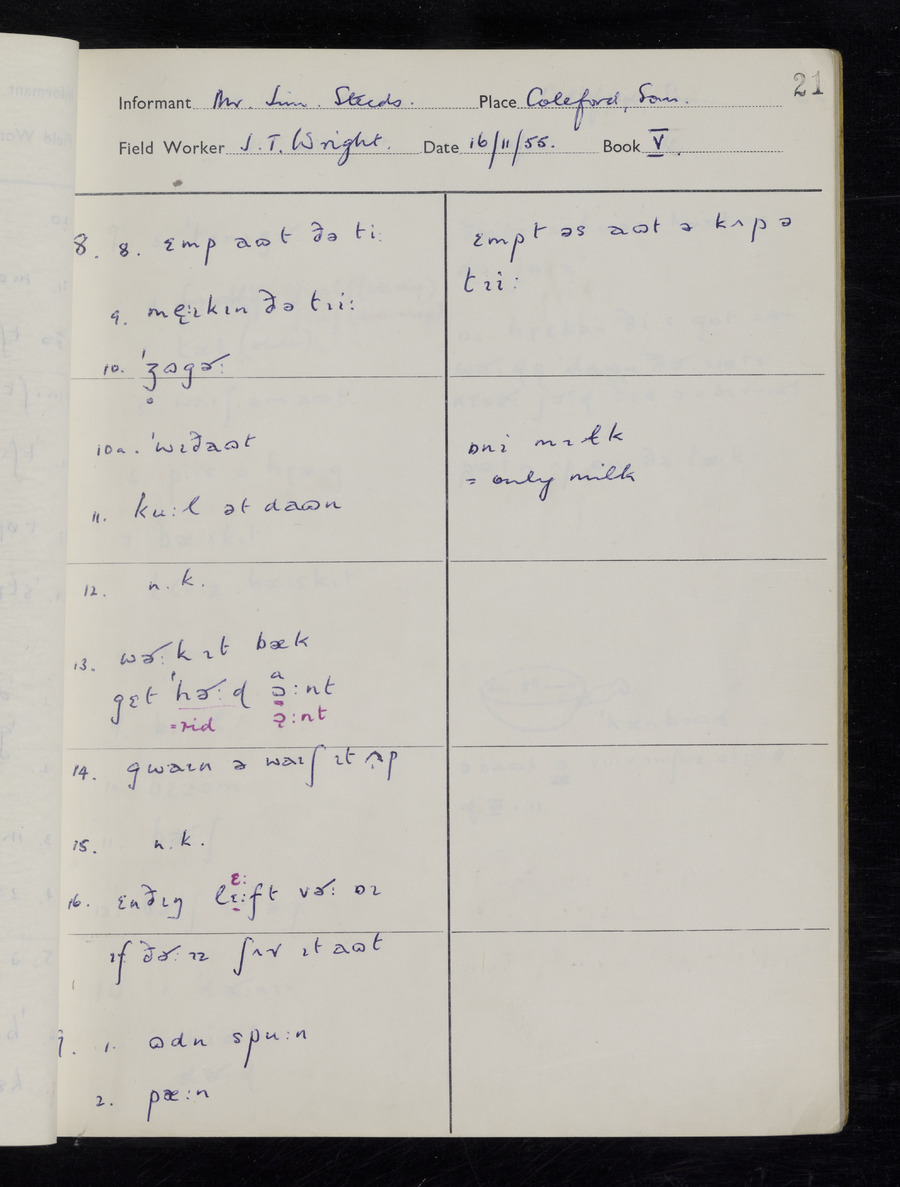 21
Informant Mr. Jim. Steeds. Place Coleford, Som.
Field Worker J. T. Wright. Date 16/11/55. Book V.
8. 8. ɛmp aɷt ðə ti:
ɛmpt əs aɷt ə kʌp ə
tɹi:
9. mɛ̨:ɪkɪn ðə tɹi:
10. 'ʒ̥ɷgə˞:
10a. 'wɪðaɷt
ɒni mɪɫk
= only milk
11. ku:l ət daɷn
12. n.k.
13. wə˞:k ɪt bæk
a
gɛt 'hə˞:d ə:nt
=rid ə:nt
14. gwaɪn ə waɪʃ ɪt ʌp
15. n.k.
ɛ:
16. ɛnðɪŋ lɛ:ft və˞: ɒɪ
ɪf ðə˞: ɪz ʃʌv ɪt aɷt
9. 1. ɷdn spu:n
2. pæ:n